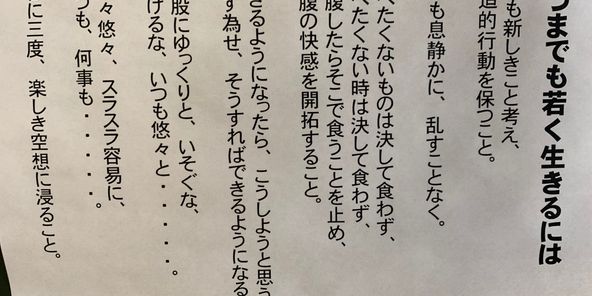 つまでも若く生きるには
も新しきこと考え、
造的行動を保つこと。
も息静かに、乱すことなく。
べたくないものは決して食わず、
べたくない時は決して食わず、
腹したらそこで食うことを止め、
腹の快感を開拓すること。
きるようになったら、こうしようと思う
ず為せ、そうすればできるようになる
股にゆっくりと、いそぐな、
けるな、いつも悠々と・・・・。
々悠々、スラスラ容易に、
つも、何事も・・・・・。
に三度、楽しき空想に浸ること。